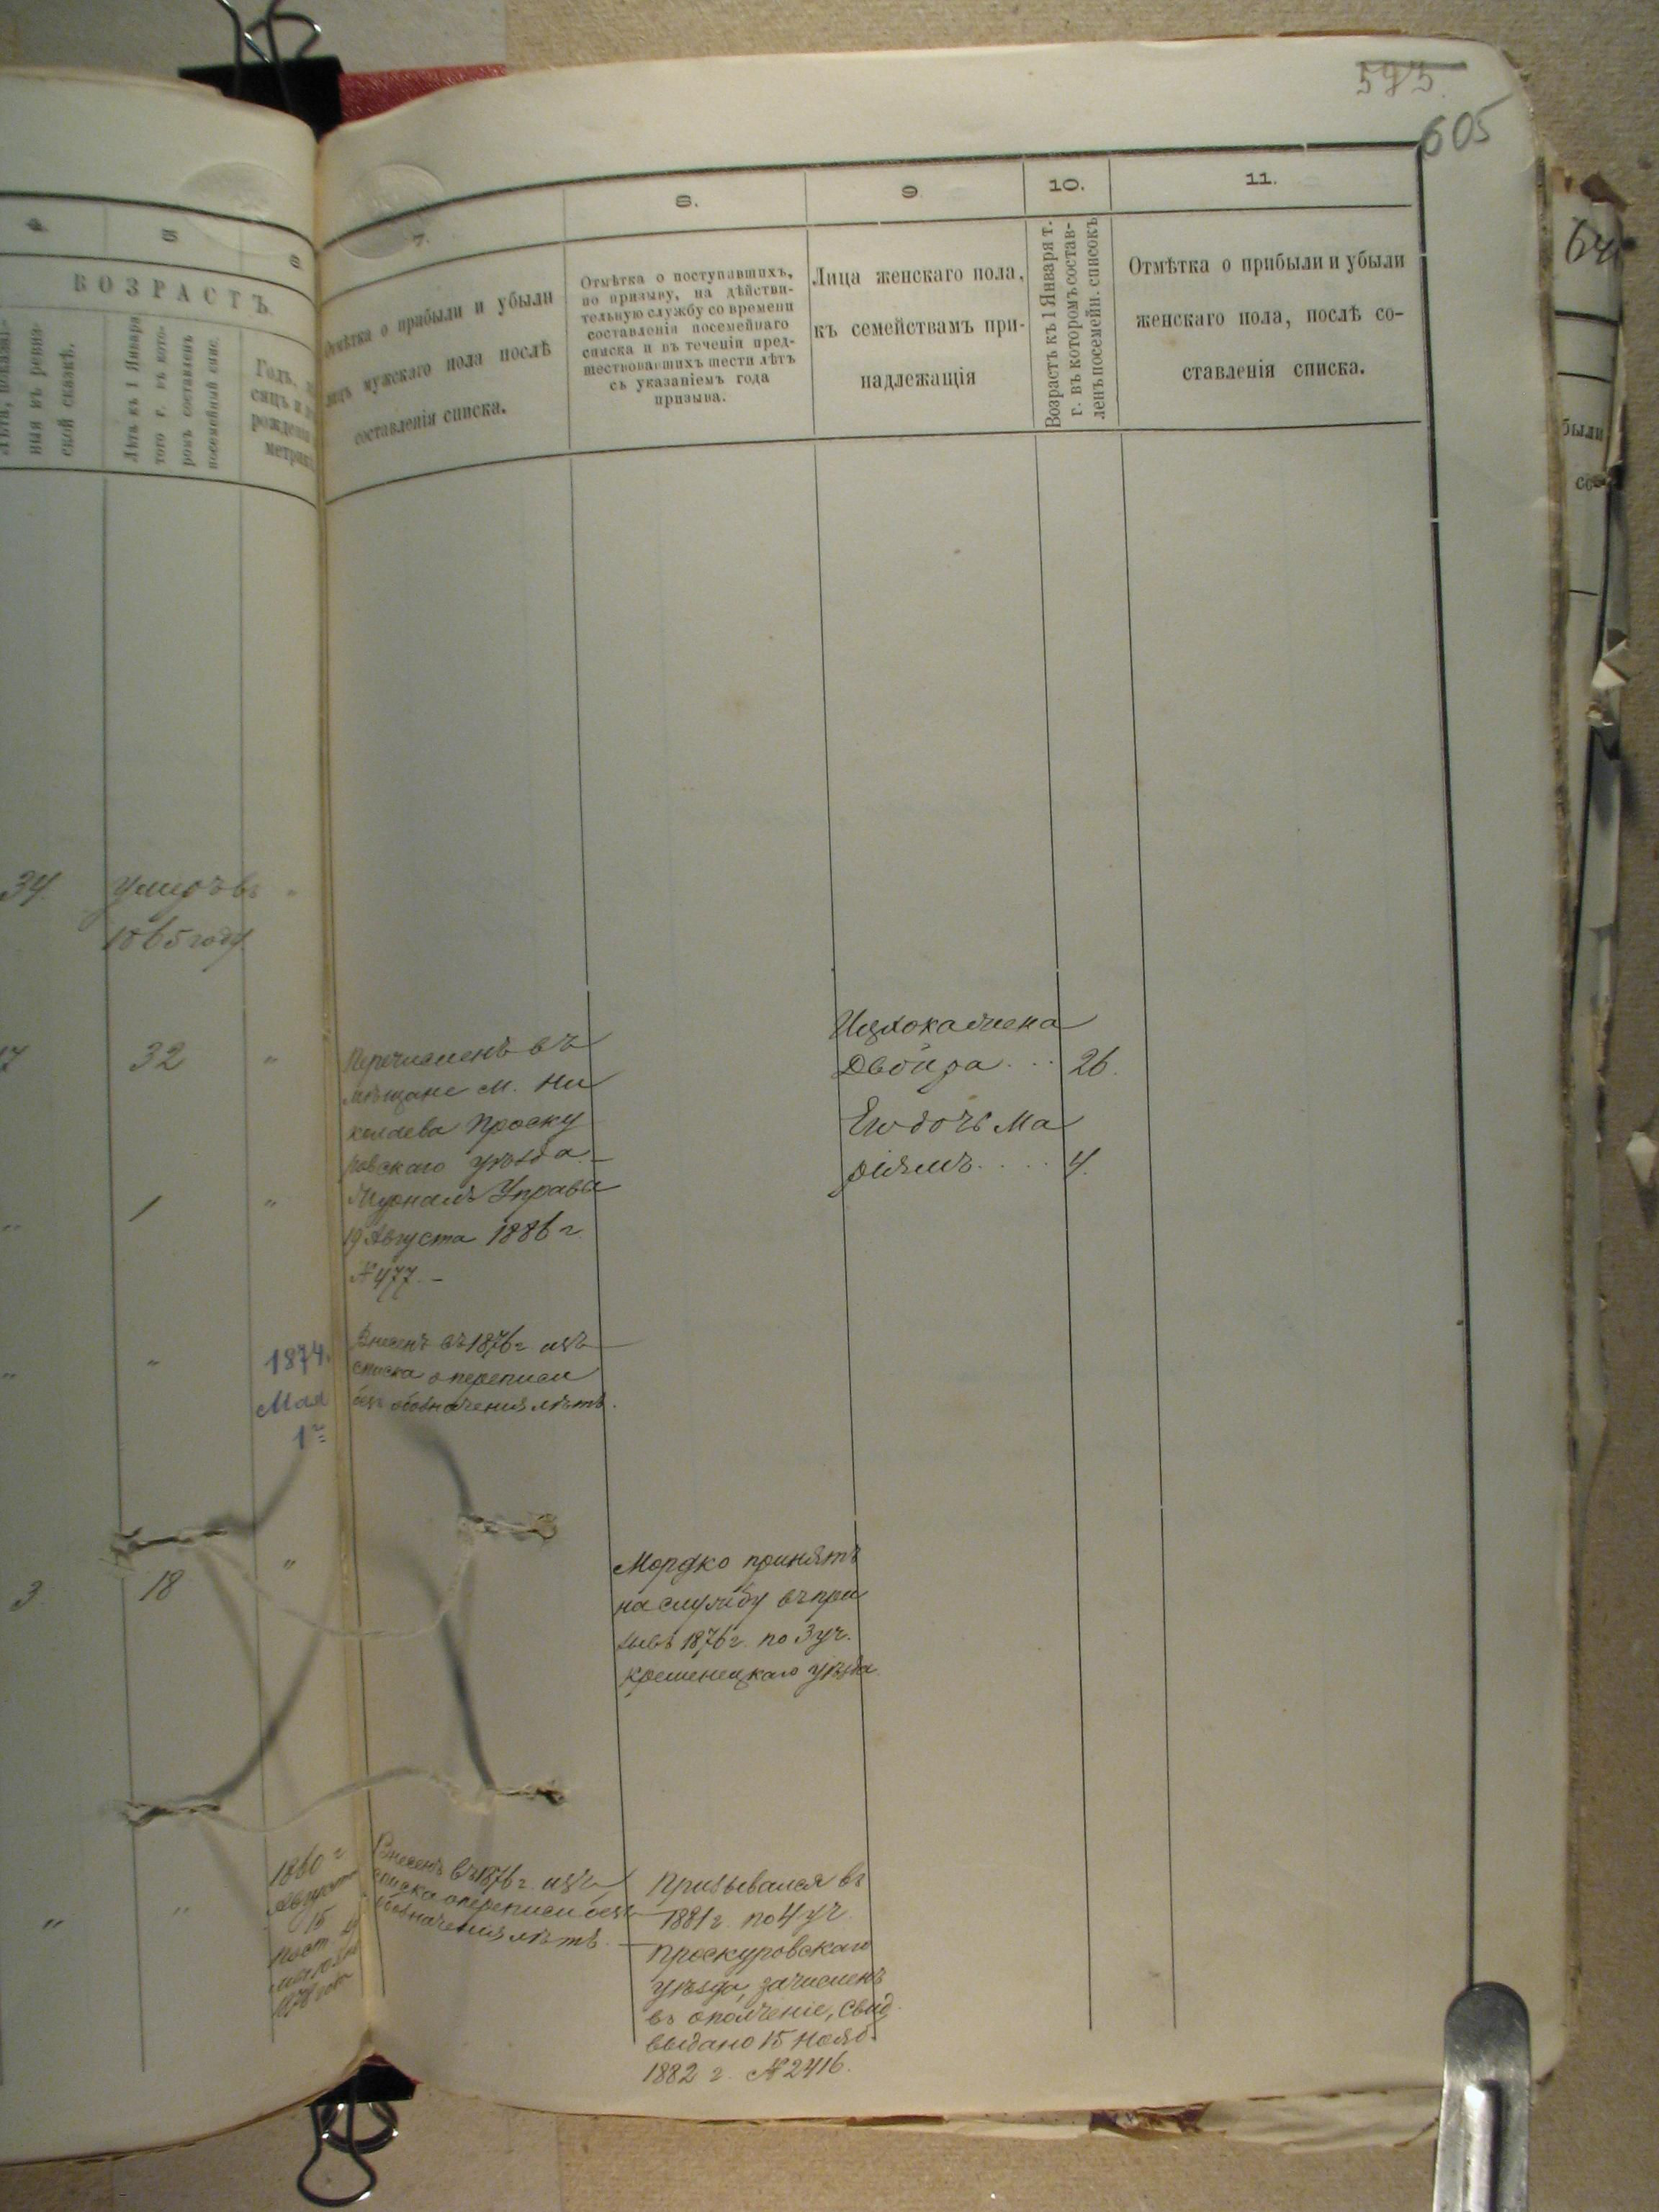 575.
605
4
5
6
ВОЗРАСТЪ.
ныя въ ревиз-
ской сказкѣ.
Лѣтъ къ 1 Января
того г. въ кото-
ромъ составленъ
посемейный спис.
Годъ,
сяцъ и
рожденія
метрик
7.
Отмѣтка о прибыли и убыли
лицъ мужскаго пола послѣ
составленія списка.
8.
Отмѣтка о поступавшихъ,
по призыву, на дѣйстви-
тельную службу со времени
составленія посемейнаго
списка и въ теченіи пред-
шествовавшихъ шести лѣтъ
съ указаніемъ года
призыва.
9
Лица женскаго пола,
къ семействамъ при-
надлежащія
10.
Возрастъ къ 1 Января т.
г. въ которомъ состав-
ленъ посемейн. списокъ
11.
Отмѣтка о прибыли и убыли
женскаго пола, послѣ со-
ставленія списка.
были
34. умеръ въ "
1865 году
32 "
1 "
Перечисленъ въ
мѣщане м. Ни
колаева Проску
ровскаго уѣзда. –
Журналъ Управы
19 Августа 1886 г.
№ 477. –
Ицхока жена
Двойра . . . 26.
Ею дочь Ма
ріямъ . . . . 4.
" 1874.
Мая
1го
Внесенъ въ 1876 г. изъ
списка о переписи
безъ обозначенія лѣтъ.
3 18 "
Мордко принятъ
на службу въ при
зывъ 1876 г. по 3 уч.
Кременецкаго уѣзда
" " 1860 г
Августа
15
Внесенъ въ 1876 г. изъ
списка о переписи безъ
обозначенія лѣтъ.
Призывался въ
1881 г. по 4 уч.
Проскуровскаго
уѣзда, зачисленъ
въ ополченіе, Свид.
выдано 15 Нояб.
1882 г. № 2416.